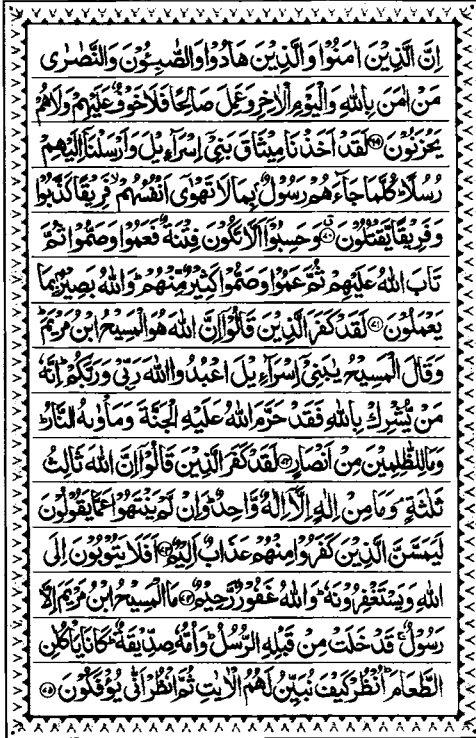 اِنَّ الَّذِيْنَ اٰمَنُوْا وَالَّذِيْنَ هَادُوْا وَالصّٰبِـُٔوْنَ وَالنَّصٰرٰى
مَنْ اٰمَنَ بِاللّٰهِ وَالْيَوْمِ الْاٰخِرِ وَعَمِلَ صَالِحًا فَلَا خَوْفٌ عَلَيْهِمْ وَلَا هُمْ
يَحْزَنُوْنَ ﴿۶۹﴾ لَقَدْ اَخَذْنَا مِيْثَاقَ بَنِيْۤ اِسْرَآءِيْلَ وَاَرْسَلْنَاۤ اِلَيْهِمْ
رُسُلًا ؕ كُلَّمَا جَآءَهُمْ رَسُوْلٌۢ بِمَا لَا تَهْوٰۤى اَنْفُسُهُمْ ۙ فَرِيْقًا كَذَّبُوْا
وَفَرِيْقًا يَّقْتُلُوْنَ ﴿۷۰﴾ وَحَسِبُوْۤا اَلَّا تَكُوْنَ فِتْنَةٌ فَعَمُوْا وَصَمُّوْا ثُمَّ
تَابَ اللّٰهُ عَلَيْهِمْ ثُمَّ عَمُوْا وَصَمُّوْا كَثِيْرٌ مِّنْهُمْ ؕ وَاللّٰهُ بَصِيْرٌۢ بِمَا
يَعْمَلُوْنَ ﴿۷۱﴾ لَقَدْ كَفَرَ الَّذِيْنَ قَالُوْۤا اِنَّ اللّٰهَ هُوَ الْمَسِيْحُ ابْنُ مَرْيَمَ ؕ
وَقَالَ الْمَسِيْحُ يٰبَنِيْۤ اِسْرَآءِيْلَ اعْبُدُوا اللّٰهَ رَبِّيْ وَرَبَّكُمْ ؕ اِنَّهٗ
مَنْ يُّشْرِكْ بِاللّٰهِ فَقَدْ حَرَّمَ اللّٰهُ عَلَيْهِ الْجَنَّةَ وَمَاْوٰىهُ النَّارُ ؕ
وَمَا لِلظّٰلِمِيْنَ مِنْ اَنْصَارٍ ﴿۷۲﴾ لَقَدْ كَفَرَ الَّذِيْنَ قَالُوْۤا اِنَّ اللّٰهَ ثَالِثُ
ثَلٰثَةٍ ۘ وَمَا مِنْ اِلٰهٍ اِلَّاۤ اِلٰهٌ وَّاحِدٌ ؕ وَاِنْ لَّمْ يَنْتَهُوْا عَمَّا يَقُوْلُوْنَ
لَيَمَسَّنَّ الَّذِيْنَ كَفَرُوْا مِنْهُمْ عَذَابٌ اَلِيْمٌ ﴿۷۳﴾ اَفَلَا يَتُوْبُوْنَ اِلَى
اللّٰهِ وَيَسْتَغْفِرُوْنَهٗ ؕ وَاللّٰهُ غَفُوْرٌ رَّحِيْمٌ ﴿۷۴﴾ مَا الْمَسِيْحُ ابْنُ مَرْيَمَ اِلَّا
رَسُوْلٌ ۚ قَدْ خَلَتْ مِنْ قَبْلِهِ الرُّسُلُ ؕ وَاُمُّهٗ صِدِّيْقَةٌ ؕ كَانَا يَاْكُلٰنِ
الطَّعَامَ ؕ اُنْظُرْ كَيْفَ نُبَيِّنُ لَهُمُ الْاٰيٰتِ ثُمَّ انْظُرْ اَنّٰى يُؤْفَكُوْنَ ﴿۷۵﴾